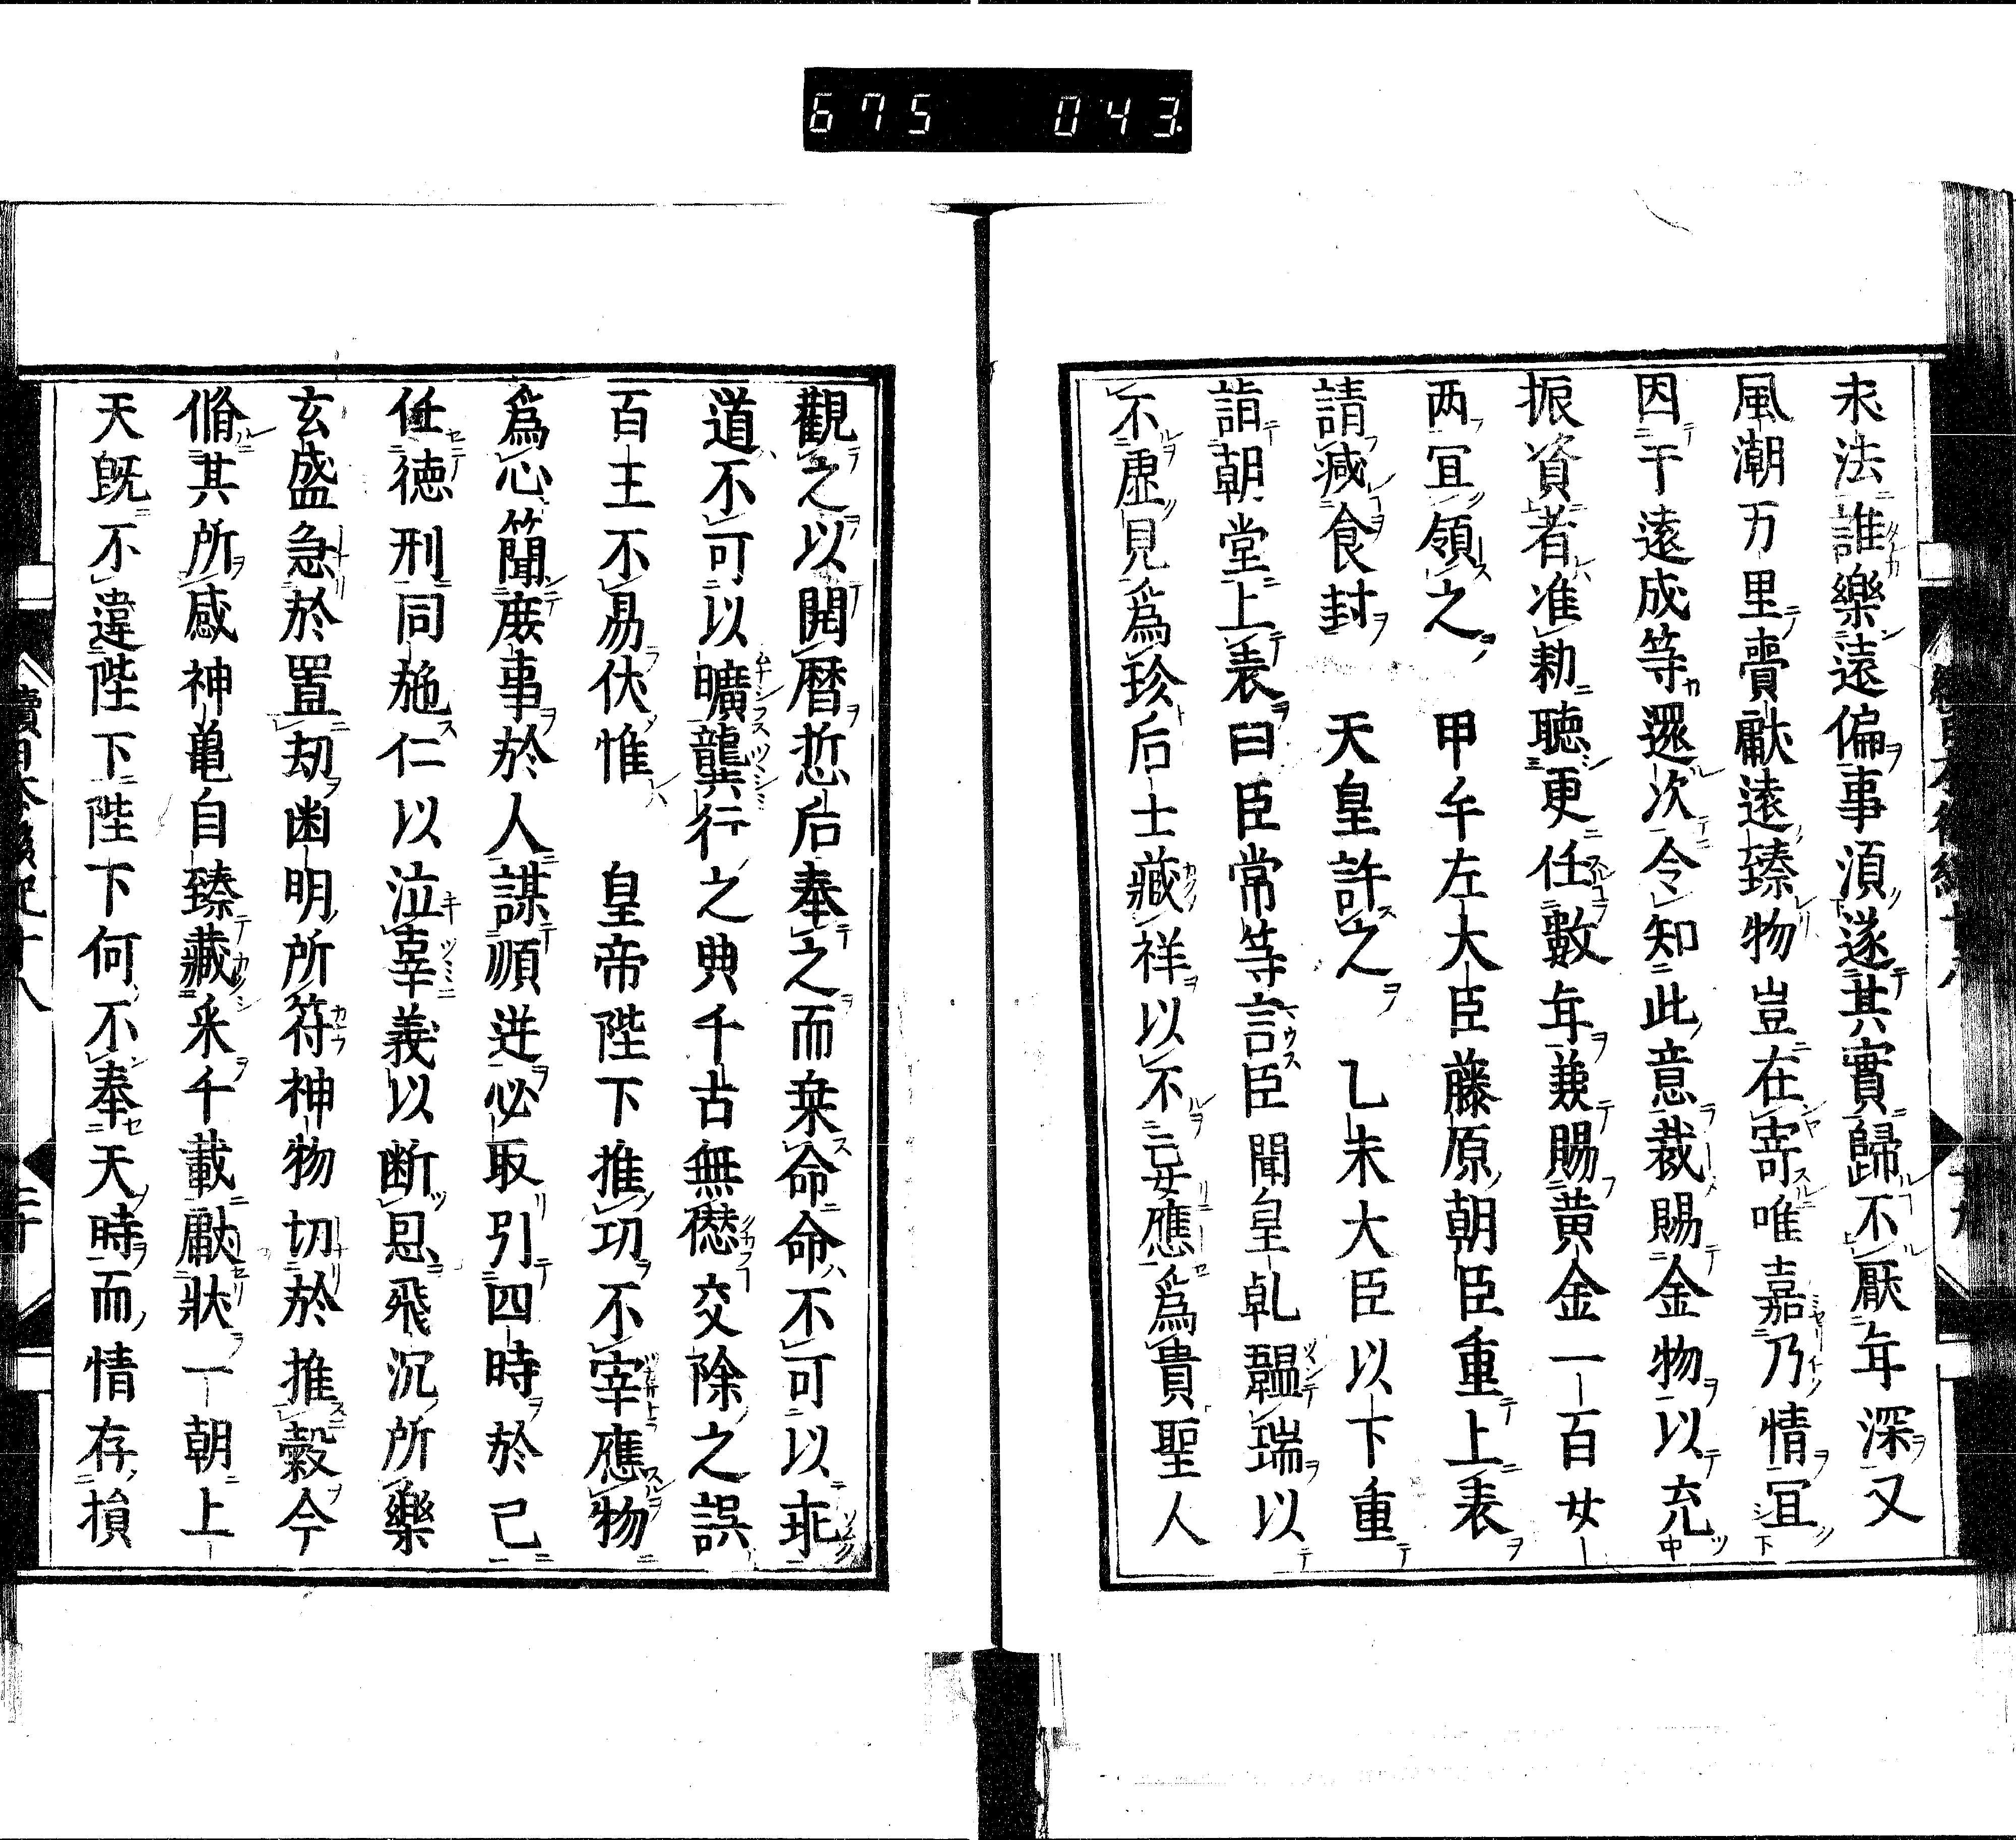 675 043
求法誰樂遠偏事湏遂其實歸不厭年深又
風潮万里賷獻遠臻物豈在寄唯嘉乃情冝
因干遠成等還次令知此意裁賜金物以充
振資者准勅聽更任數年兼賜黄金一百女
两冝領之 甲午左大臣藤原朝臣重上表
請减食封 天皇許之 乙未大臣以下重
詣朝堂上表曰臣常等言臣聞皇乹韞瑞以
不虛見爲珍后士藏祥以不妄應爲貴聖人
觀之以開暦哲后奉之而乗命命不可以乖
道不可以曠龔行之典千古無僁交除之誤
百王不易伏惟 皇帝陛下推功不宰應物
爲心簡庶事於人謀順逆必取引四時於己
任德刑同施仁以泣辜義以断恩飛沉所樂
玄盛急於置劫幽明所符神物切於推轂今
脩其所感神亀自臻藏采千載獻狀一朝上
天既不違陛下陛下何不奉天時而情存損